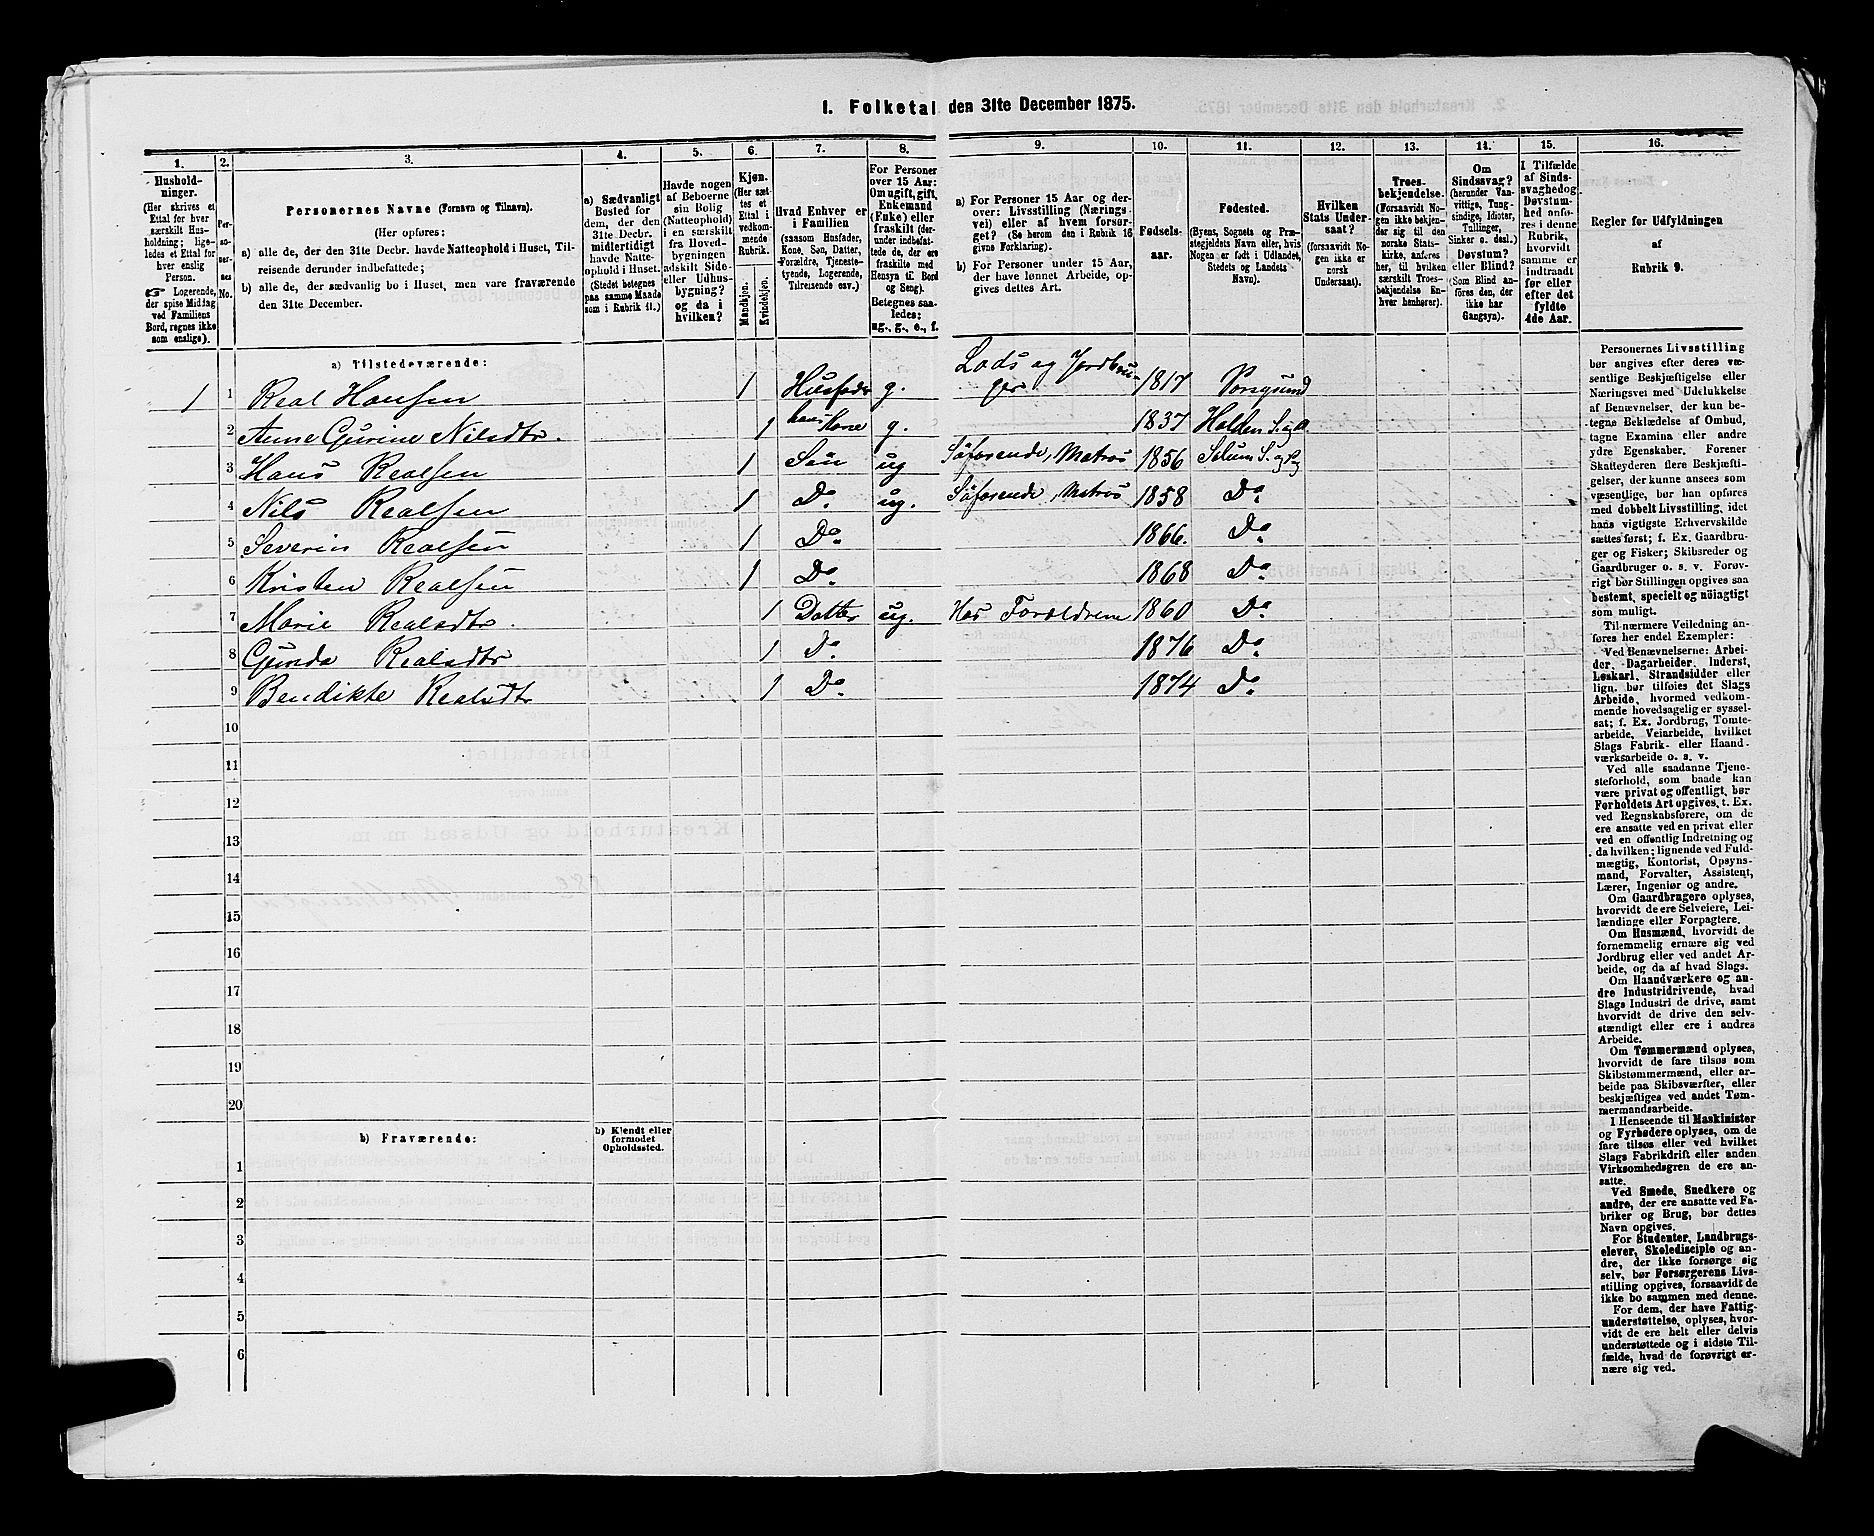 1. Folketal den 31te December 1875.
1. 2. 3. 4. 5. 6. 7. 8. 9. 10. 11. 12. 13. 14. 15. 16.
Hushold-
ninger.
(Her skrives et
Ettal for hver
særskilt Hus-
holdning; lige-
ledes et Ettal for
hver enslig
Person.
☞ Logerende,
der spise Middag
ved Familiens
Bord, regnes ikke
som enslige).
Per-
so-
ner-
nes
No.
Personernes Navne (Fornavn og Tilnavn).
(Her opføres:
a) alle de, der den 31te Decbr. havde Natteophold i Huset, Til-
reisende derunder indbefattede;
b) alle de, der sædvanlig bo i Huset, men vare fraværende
den 31te December.
a) Sædvanligt
Bosted for
dem, der den
31te Decbr.
midlertidigt
havde Natte-
ophold i Huset.
(Stedet betegnes
paa samme Maade
som i Rubrik 11.)
Havde nogen
af Beboerne
sin Bolig
(Natteophold)
i en særskilt
fra Hoved-
bygningen
adskilt Side-
eller Udhus-
bygning?
og da i
hvilken?
Kjøn.
(Her sæt-
tes et
Ettal i
vedkom-
mende
Rubrik.
Mandkjøn.
Kvindekjøn.
Hvad Enhver er
i Familien
(saasom Husfader,
Kone, Søn, Datter,
Forældre, Tjeneste-
tyende, Logerende,
Tilreisende osv.)
For Personer
over 15 Aar:
Om ugift, gift,
Enkemand
(Enke) eller
fraskilt (der-
under indbefat-
tede de, der ere
fraskilte med
Hensyn til Bord
og Seng).
Betegnes saa-
ledes:
ug., g., e., f.
a) For Personer 15 Aar og der-
over: Livsstilling (Nærings-
vei) eller af hvem forsør-
get? (Se herom den i Rubrik 16
givne Forklaring).
b) For Personer under 15 Aar,
der have lønnet Arbeide, op-
gives dettes Art.
Fødsels-
aar.
Fødested.
(Byens, Sognets og Præ-
stegjeldets Navn eller, hvis
Nogen er født i Udlandet,
Stedets og Landets
Navn).
Hvilken
Stats Under-
saat?
(forsaavidt No-
gen ikke er
norsk
Undersaat).
Troes-
bekjendelse.
(Forsaavidt No-
gen ikke bekjen-
der sig til den
norske Stats-
kirke, anføres
her, til hvilken
særskilt Troes-
bekjendelse En-
hver henhører).
Om
Sindssvag?
(herunder Van-
vittige, Tung-
sindige, Idioter,
Tullinger,
Sinker o. desl.)
Døvstum?
eller Blind?
(Som Blind an-
føres den, der
ikke har
Gangsyn).
I Tilfælde
af Sinds-
svaghed og
Døvstum-
hed anfø-
res i denne
Rubrik,
hvorvidt
samme er
indtraadt
før eller
efter det
fyldte
4de Aar.
Regler for Udfyldningen
af
Rubrik 9.
a) Tilstedeværende:
1 1 Real Hansen 1 Husfader g. Lods og Jordbru-
ger 1817 Porsgrund
2 Anne Gurine Nilsdtr. 1 hans Kone g. 1837 Holden S. og P.
3 Hans Realsen 1 Søn ug Søfarende, Matros 1856 Solum S. og P
4 Nils Realsen 1 Do ug. Søfarende, Matros 1858 Do
5 Severin Realsen 1 Do 1866. Do
6 Kristen Realsen 1 Do. 1868 Do
7 Marie Realsdtr. 1 Datter ug. Hos Forældrene 1860 Do
8 Gunda Realsdtr 1 Do. 1876 Do
9 Bendikte Realsdtr 1 Do. 1874 Do
10
11
12
13
14
15
16
17
18
19
20
b) Fraværende:
b) Kjendt eller
formodet
Opholdssted.
1
2
3
4
5
6
Personernes Livsstilling
bør angives efter deres væ-
sentlige Beskjæftigelse eller
Næringsvei med Udelukkelse
af Benævnelser, der kun be-
tegne Beklædelse af Ombud,
tagne Examina eller andre
ydre Egenskaber. Forener
Skatteyderen flere Beskjæfti-
gelser, der kunne ansees som
væsentlige, bør han opføres
med dobbelt Livsstilling, idet
hans vigtigste Erhvervskilde
sættes først; f. Ex. Gaardbru-
ger og Fisker; Skibsreder og
Gaardbruger o. s. v. Forøv-
rigt bør Stillingen opgives saa
bestemt, specielt og nøiagtigt
som muligt.
Til nærmere Veiledning an-
føres her endel Exempler:
Ved Benævnelserne: Arbei-
der, Dagarbeider, Inderst,
Løskarl, Strandsidder eller
lign. bør tilføies det Slags
Arbeide, hvormed vedkom-
mende hovedsagelig er syssel-
sat; f. Ex. Jordbrug, Tomte-
arbeide, Veiarbeide, hvilket
Slags Fabrik- eller Haand-
værksarbeide o. s. v.
Ved alle saadanne Tjene-
steforhold, som baade kan
være privat og offentligt, bør
Forholdets Art opgives, t. Ex.
ved Regnskabsførere, om de
ere ansatte ved en privat eller
ved en offentlig Indretning og
da hvilken; lignende ved Fuld-
mægtig, Kontorist, Opsyns-
mand, Forvalter, Assistent,
Lærer, Ingeniør og andre.
Om Gaardbrugere oplyses,
hvorvidt de ere Selveiere, Lei-
lændinge eller Forpagtere.
Om Husmænd, hvorvidt de
fornemmelig ernære sig ved
Jordbrug eller ved andet Ar-
beide, og da af hvad Slags.
Om Haandværkere og an-
dre Industridrivende, hvad
Slags Industri de drive, samt
hvorvidt de drive den selv-
stændigt eller ere i andres
Arbeide.
Om Tømmermænd oplyses,
hvorvidt de fare tilsøs som
Skibstømmermænd, eller ar-
beide paa Skibsværfter, eller
beskjæftiges ved andet Tøm-
mermandsarbeide.
I Henseende til Maskinister
og Fyrbødere oplyses, om de
fare tilsøs eller ved hvilket
Slags Fabrikdrift eller anden
Virksomhedsgren de ere an-
satte.
Ved Smede, Snedkere og
andre, der ere ansatte ved Fa-
briker og Brug, bør dettes
Navn opgives.
For Studenter, Landbrugs-
elever, Skoledisciple og an-
dre, der ikke forsørge sig
selv, bør Forsørgerens Livs-
stilling opgives, forsaavidt de
ikke bo sammen med denne.
For dem, der have Fattig-
understøttelse, oplyses, hvor-
vidt de ere helt eller delvis
understøttede og i sidste Til-
fælde, hvad de forøvrigt er-
nære sig ved.